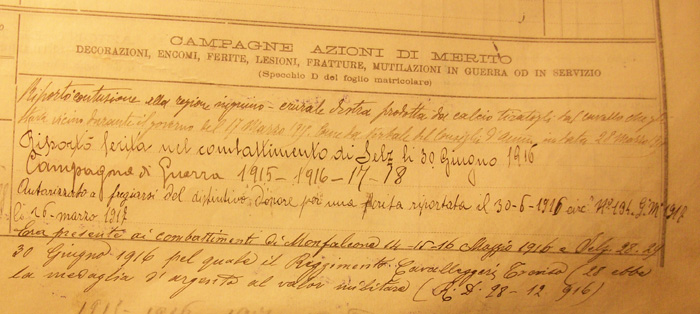 CAMPAGNE AZIONI DI MERITO
DECORAZIONI, ENCOMI, FERITE, LESIONI, FRATTURE, MUTILAZIONI IN GUERRA OD IN SERVIZIO
(Specchio D del foglio matricolare)
Riportò contusione alla regione inguino-crurale destra prodotta da calcio tiratogli dal cavallo che gli
stava vicino durante il governo del 17 Marzo verbale del Consiglio d'Amm. in data 28 marzo
Riportò ferita nel combattimento di Selz li 30 Giugno 1916
Campagne di Guerra 1915-1916-17-18
Autorizzato a fregiarsi del distintivo d'onore per una ferita riportata il 30-6-1916 circ. N° 194 G. M. 1917
li 26 marzo 1917
Era presente ai combattimenti di Monfalcone 14-15-16 Maggio 1916 e Selz 28-29
30 Giugno 1916 pel quale il Reggimento Cavalleggeri Treviso (28 ebbe
la medaglia d'argento al valor militare (R. D. 28-12-916)